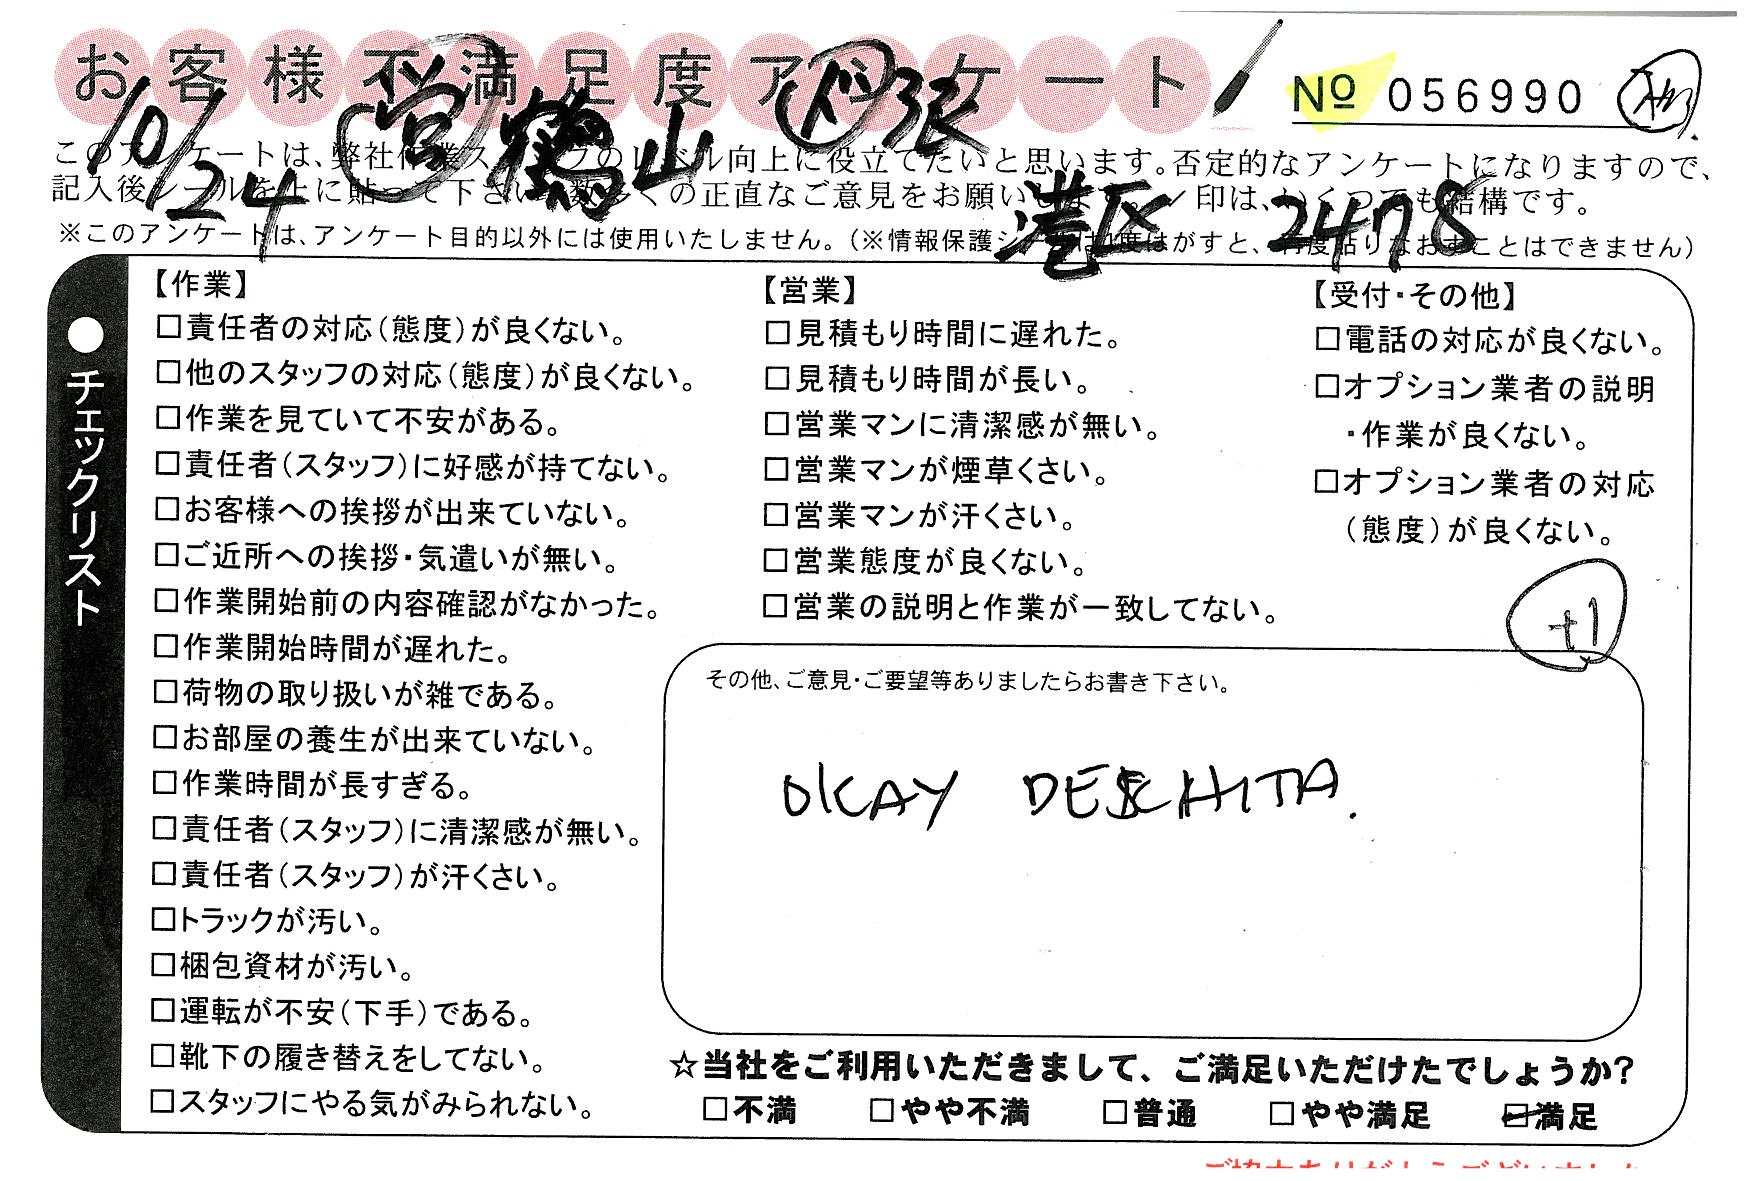 お客様不満足度アンケート
№ 056990
10/24 営 鶴山 ド 張
このアンケートは、弊社作業スタッフのレベル向上に役立てたいと思います。否定的なアンケートになりますので、
記入後シールを上に貼って下さい。数多くの正直なご意見をお願いします。✓印は、いくつでも結構です。
港区 2478
※このアンケートは、アンケート目的以外には使用いたしません。(※情報保護シールは1度はがすと、再度貼りなおすことはできません)
●チェックリスト
【作業】
□責任者の対応(態度)が良くない。
□他のスタッフの対応(態度)が良くない。
□作業を見ていて不安がある。
□責任者(スタッフ)に好感が持てない。
□お客様への挨拶が出来ていない。
□ご近所への挨拶・気遣いが無い。
□作業開始前の内容確認がなかった。
□作業開始時間が遅れた。
□荷物の取り扱いが雑である。
□お部屋の養生が出来ていない。
□作業時間が長すぎる。
□責任者(スタッフ)に清潔感が無い。
□責任者(スタッフ)が汗くさい。
□トラックが汚い。
□梱包資材が汚い。
□運転が不安(下手)である。
□靴下の履き替えをしてない。
□スタッフにやる気がみられない。
【営業】
□見積もり時間に遅れた。
□見積もり時間が長い。
□営業マンに清潔感が無い。
□営業マンが煙草くさい。
□営業マンが汗くさい。
□営業態度が良くない。
□営業の説明と作業が一致してない。
【受付・その他】
□電話の対応が良くない。
□オプション業者の説明
・作業が良くない。
□オプション業者の対応
(態度)が良くない。
+1
その他、ご意見・ご要望等ありましたらお書き下さい。
OKAY DESHITA.
☆当社をご利用いただきまして、ご満足いただけたでしょうか?
□不満 □やや不満 □普通 □やや満足 ☑満足
ご協力ありがとうございました